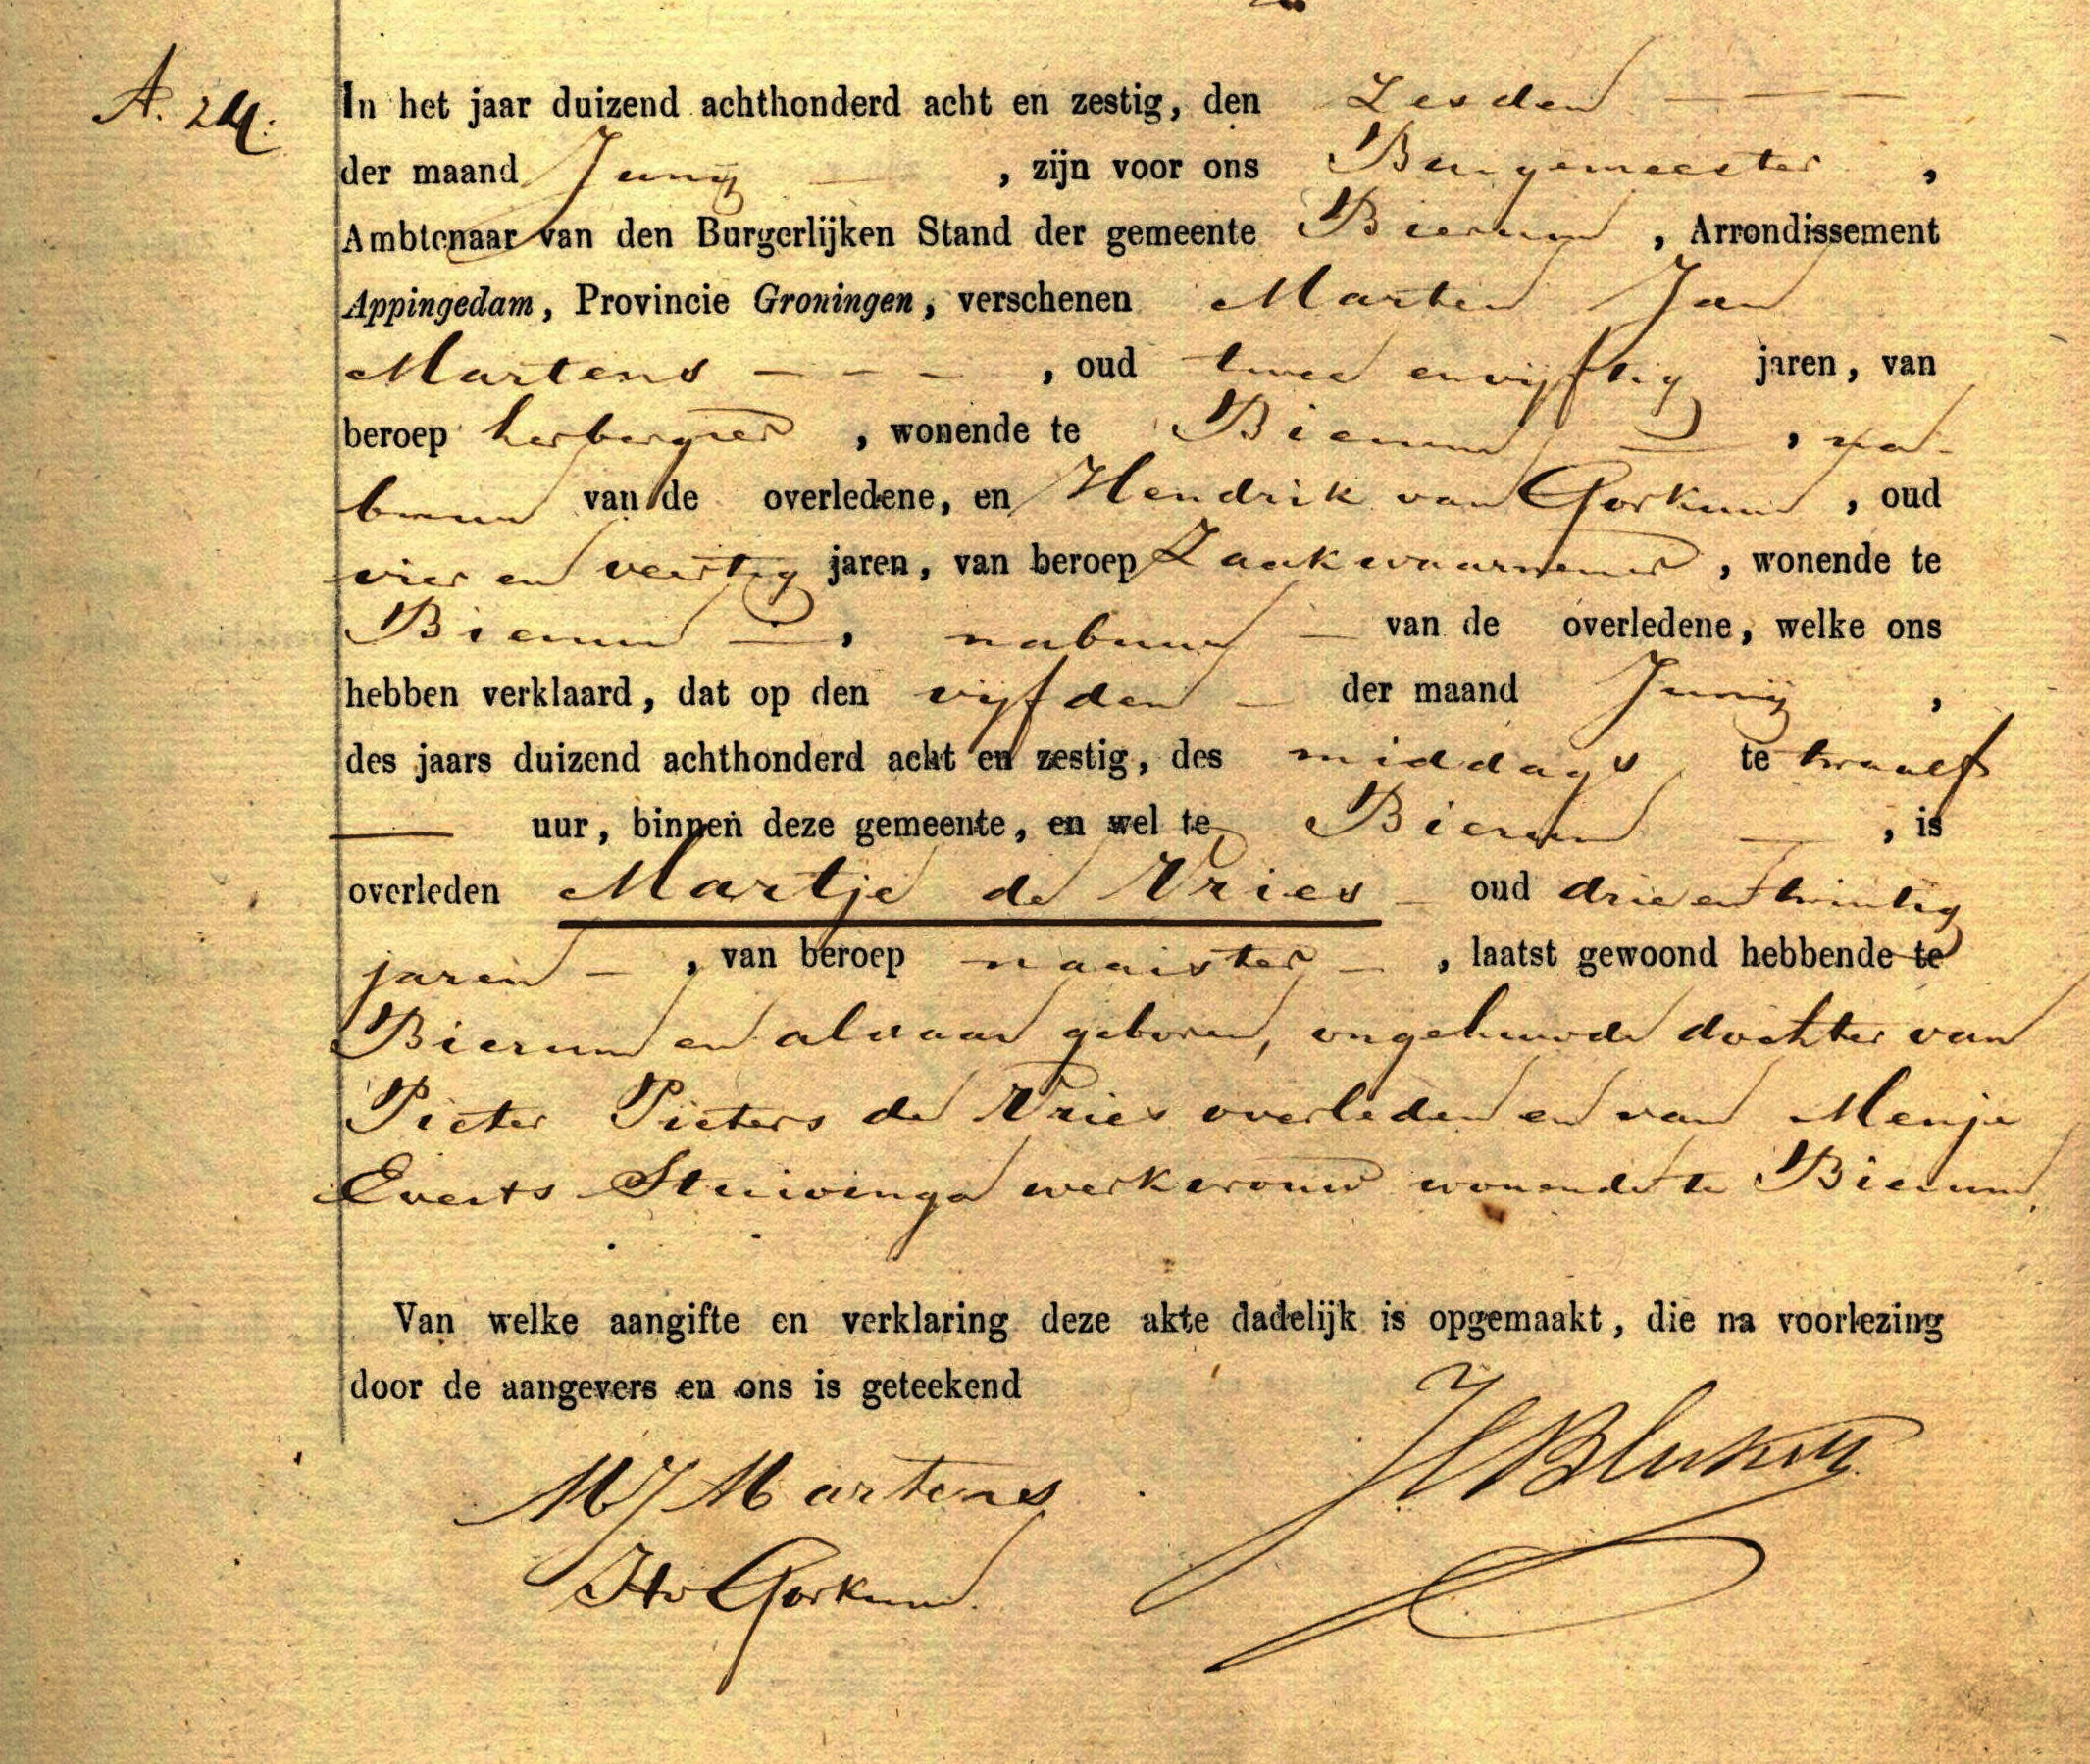 A. 24.
In het jaar duizend achthonderd acht en zestig, den Zesden
der maand Junij, zijn voor ons Burgemeester,
Ambtenaar van den Burgerlijken Stand der gemeente Bierum, Arrondissement
Appingedam, Provincie Groningen, verschenen Marten Jan
Martens - - -, oud twee en vijftig jaren, van
beroep herbergier, wonende te Bierum, na-
buur van de overledene, en Hendrik van Gorkum, oud
vier en veertig jaren, van beroep Zaakwaarnemer, wonende te
Bierum -, nabuur - van de overledene, welke ons
hebben verklaard, dat op den vijfden - der maand Junij,
des jaars duizend achthonderd acht en zestig, des middags te twaalf
— uur, binnen deze gemeente, en wel te Bierum -, is
overleden Martje de Vries - oud drie en twintig
jaren -, van beroep naaister -, laatst gewoond hebbende te
Bierum en aldaar geboren, ongehuwde dochter van
Pieter Pieters de Vries overleden en van Menje
Everts Stuivinga werkvrouw wonende te Bierum.
Van welke aangifte en verklaring deze akte dadelijk is opgemaakt, die na voorlezing
door de aangevers en ons is geteekend
MJ Martens
Hv Gorkum.